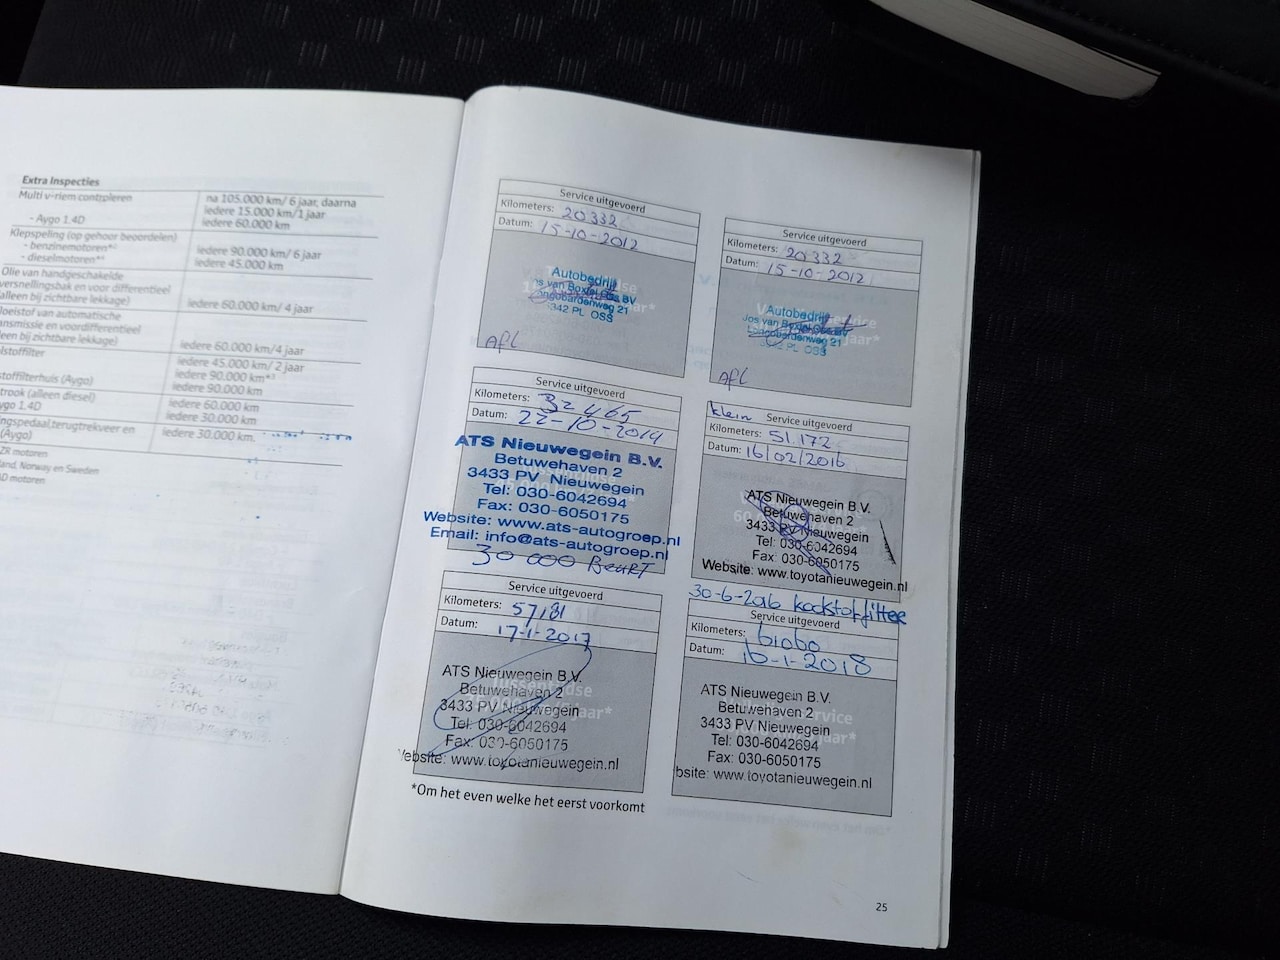 Extra Inspecties
Multi v-riem controleren
na 105.000 km/ 6 jaar, daarna
iedere 15.000 km/1 jaar
- Aygo 1.4D
iedere 60.000 km
Klepspeling (op gehoor beoordelen)
- benzinemotoren*²
iedere 90.000 km/ 6 jaar
- dieselmotoren*⁴
iedere 45.000 km
Olie van handgeschakelde
versnellingsbak en voor differentieel
(alleen bij zichtbare lekkage)
iedere 60.000 km/ 4 jaar
loeistof van automatische
ansmissie en voordifferentieel
leen bij zichtbare lekkage)
iedere 60.000 km/4 jaar
lstoffilter
iedere 45.000 km/ 2 jaar
iedere 90.000 km*³
stoffilterhuis (Aygo)
iedere 90.000 km
trook (alleen diesel)
iedere 60.000 km
ygo 1.4D
iedere 30.000 km
ingspedaal,terugtrekveer en
(Aygo)
iedere 30.000 km.
ZR motoren
land, Norway en Sweden
D motoren
Service uitgevoerd
Kilometers: 20332
Datum: 15-10-2012
Autobedrijf
Jos van Boxtel Oss BV
Longobardenweg 21
5342 PL OSS
Afl
Service uitgevoerd
Kilometers: 20332
Datum: 15-10-2012
Autobedrijf
Jos van Boxtel Oss BV
Longobardenweg 21
5342 PL OSS
Afl
Service uitgevoerd
Kilometers: 32465
Datum: 22-10-2014
ATS Nieuwegein B.V.
Betuwehaven 2
3433 PV Nieuwegein
Tel: 030-6042694
Fax: 030-6050175
Website: www.ats-autogroep.nl
Email: info@ats-autogroep.nl
30 000 Beurt
klein
Service uitgevoerd
Kilometers: 51.172
Datum: 16/02/2016
ATS Nieuwegein B.V.
Betuwehaven 2
3433 PV Nieuwegein
Tel: 030-6042694
Fax: 030-6050175
Website: www.toyotanieuwegein.nl
30-6-2016
Service uitgevoerd
Kilometers: 57181
Datum: 17-1-2017
ATS Nieuwegein B.V.
Betuwehaven 2
3433 PV Nieuwegein
Tel: 030-6042694
Fax: 030-6050175
Website: www.toyotanieuwegein.nl
Service uitgevoerd
Kilometers: 61060
Datum: 16-1-2018
ATS Nieuwegein B.V.
Betuwehaven 2
3433 PV Nieuwegein
Tel: 030-6042694
Fax: 030-6050175
bsite: www.toyotanieuwegein.nl
*Om het even welke het eerst voorkomt
25